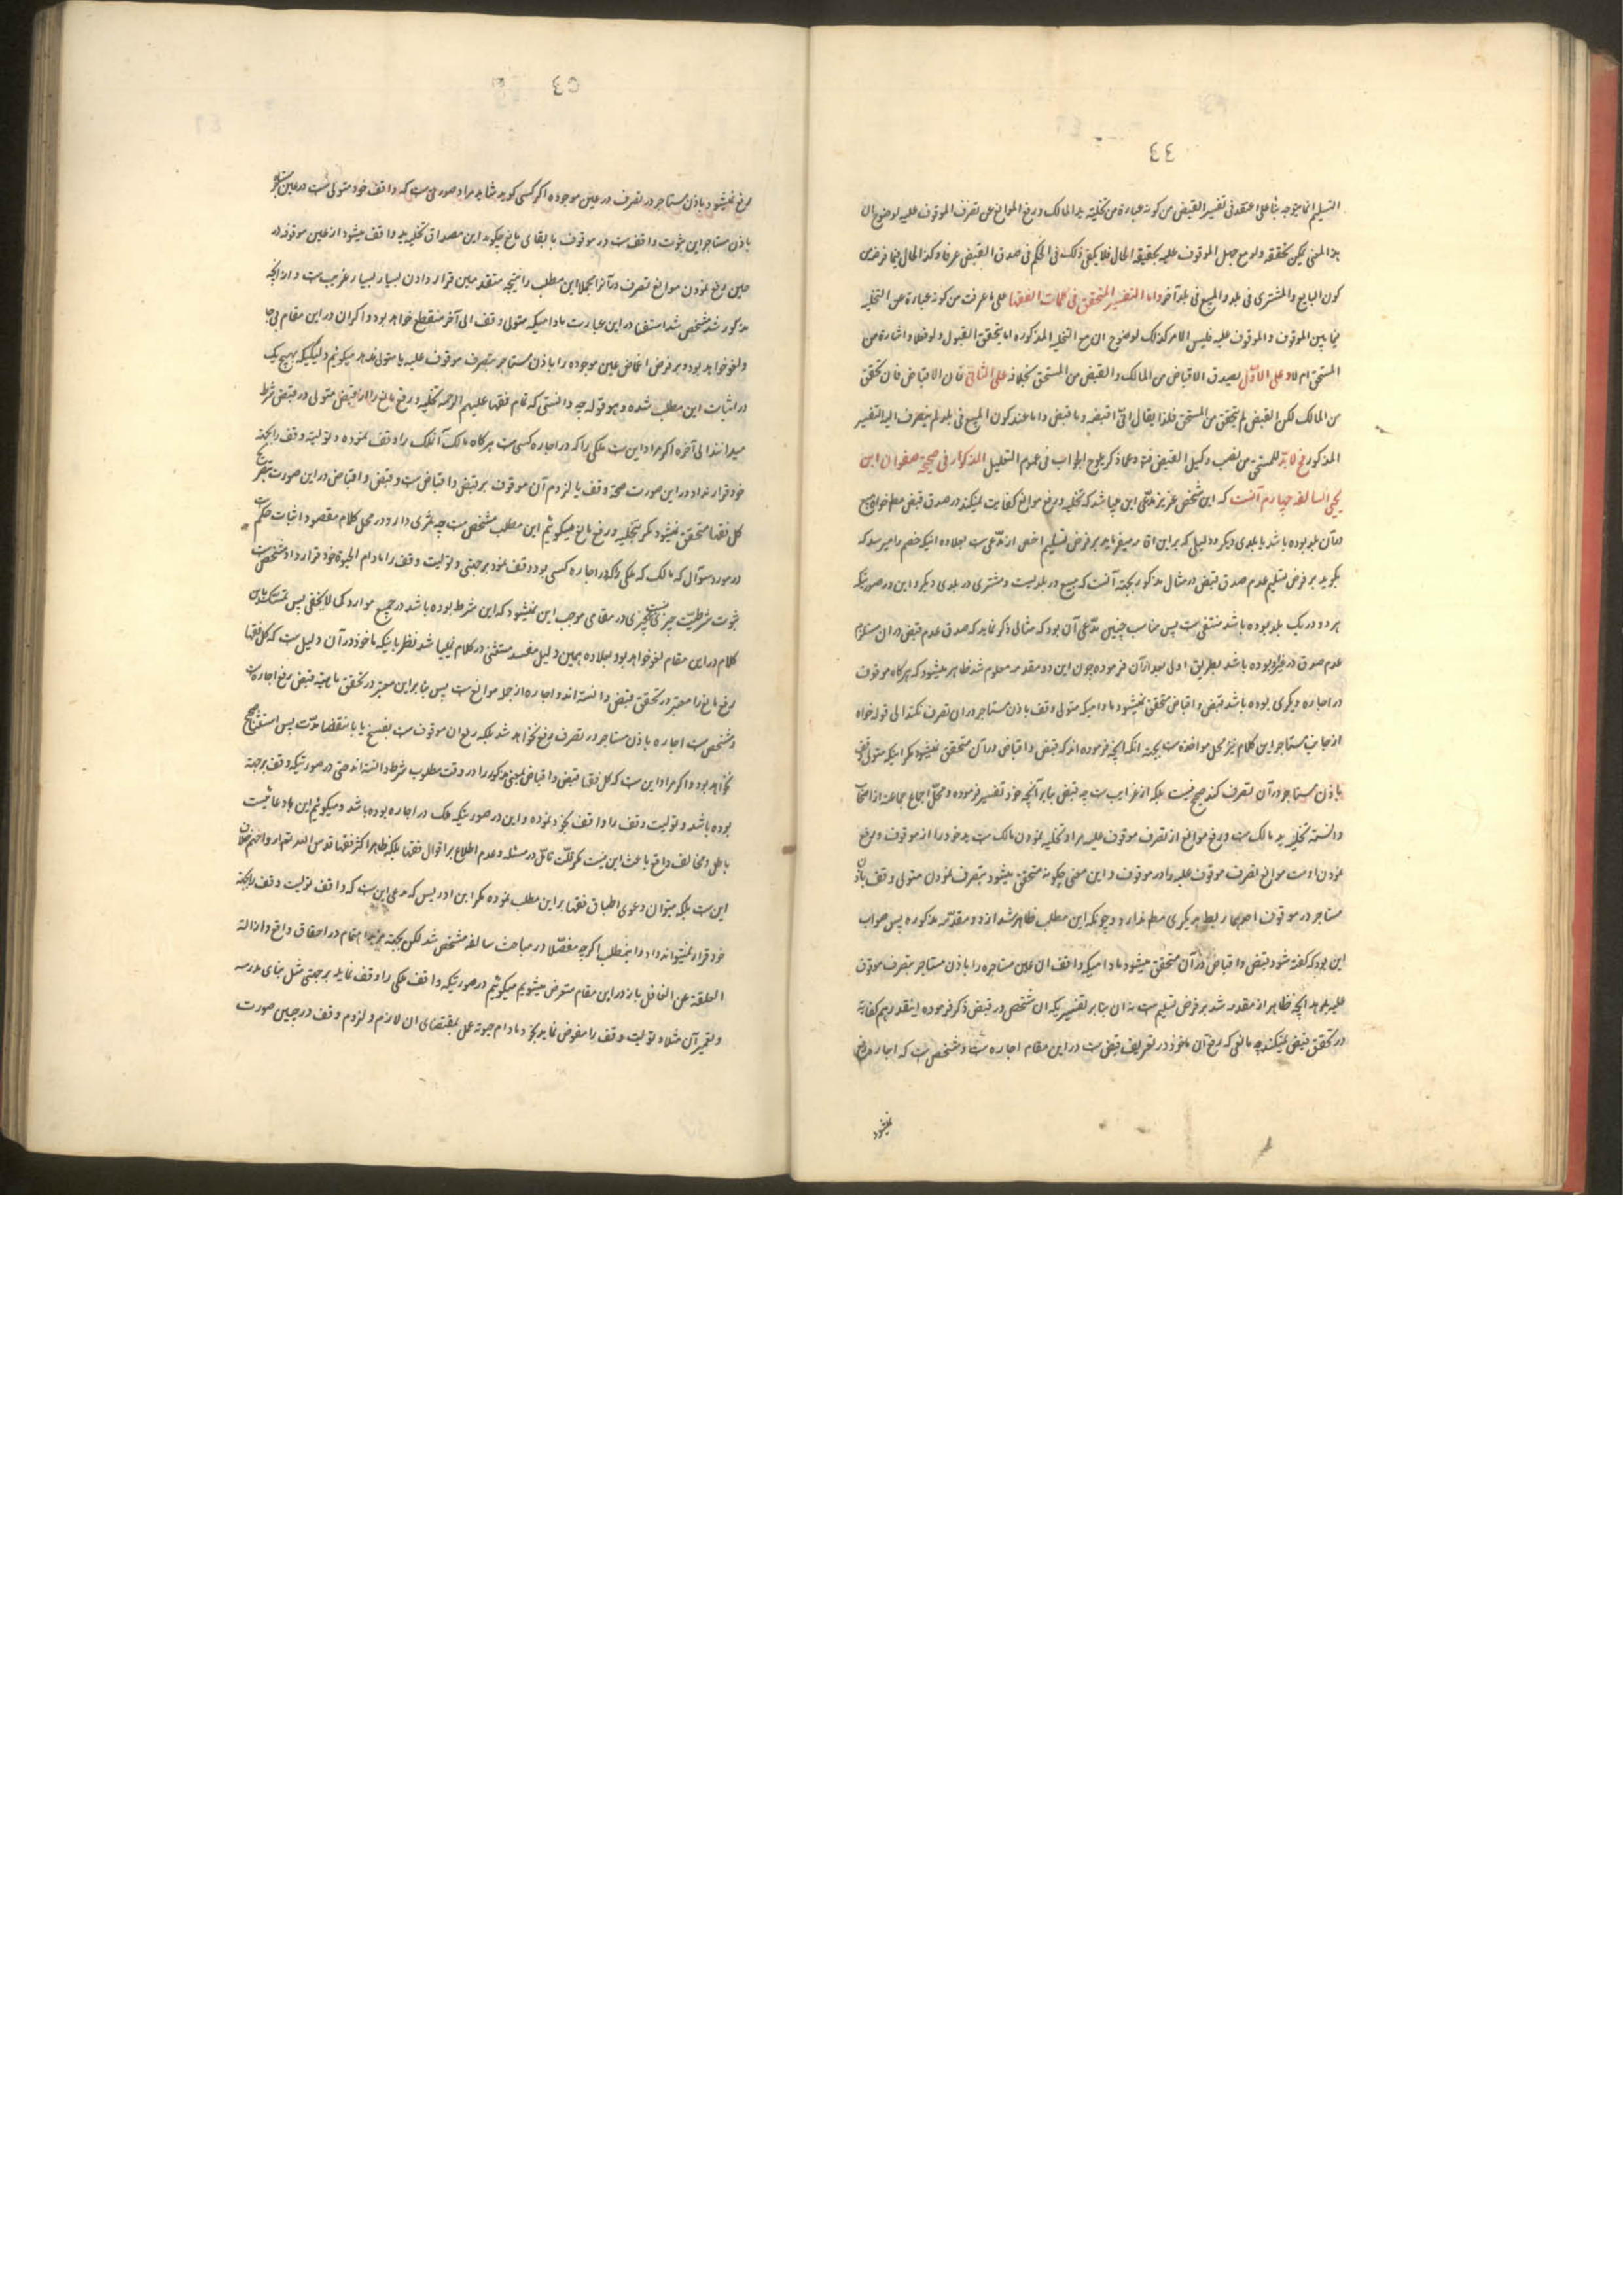 ٤٤
التسلیم انما یتوجه بناء علی اعتقد فی تفسیر القبض من کونه عبارة من تخلیة ید المالک و رفع الموانع عن تصرف الموقوف علیه لوضوح ان
هذا المعنی یمکن تحققه ولو مع جهل الموقوف علیه بحقیقة الحال فلا یکفی ذلک فی الحکم فی صدق القبض عرفا و کذا الحال فیما فرضه من
کون البایع و المشتری فی بلد و المبیع فی بلد آخر و اما التفسیر المتحقق فی کلمات الفقها علی ما عرفت من کونه عبارة عن التخلیه
فیما بین الموقوف و الموقوف علیه فلیس الامر کذلک لوضوح ان مع التخلیه المذکوره اما یتحقق القبول ولو فعلا و اشارة من
المستحق ام لا و علی الاول یصدق الاقباض من المالک و القبض من المستحق بخلافه علی الثانی فان الاقباض فان تحقق
من المالک لکن القبض لم یتحقق من المستحق فلذا یقال انی اقبضه و ما قبض و اما عند کون المبیع فی بلد لم ینصرف الیه التفسیر
المذکور فح لا بد للمستحق من نصب وکیل القبض فیه و مما ذکر یلوح الجواب فی عموم التعلیل المذکور فی صحیحة صفوان ابن
یحیی السالفه چهارم آنست که این شخص عزیز مدعی این میباشد که تخلیه و رفع موانع کفایت نمیکند در صدق قبض مطم خواه مبیع
در آن بلد بوده باشد یا بلدی دیگر و دلیلی که بر این اقامه میفرماید بر فرض تسلیم اخص از مدعی است بعلاوه انکه خصم را میرسد که
بگوید بر فرض تسلیم عدم صدق قبض در مثال مذکور بجهة آنست که مبیع در بلدیست و مشتری در بلدی دیگر و این در صورتیکه
هر دو در یک بلد بوده باشد منتفی است پس مناسب چنین مدعی آن بود که مثالی ذکر نماید که صدق عدم قبض در ان مستلزم
عدم صدق در غیر او بوده باشد بطریق اولی بعد از آن فرموده چون این دو مقدمه معلوم شد ظاهر میشود که هرگاه موقوف
در اجاره دیگری بوده باشد قبض و اقباض متحقق نمیشود مادامیکه متولی وقف باذن مستاجر در ان تصرف نکند الی قوله خواه
از جانب مستاجر این کلام نیز محل مواخذه است بجهة انکه انچه فرموده اند که قبض و اقباض در آن متحقق نمیشود مگر اینکه متولی وقف
باذن مستاجر در آن تصرف کند صحیح نیست بلکه از غرایب است چه قبض بنابر آنچه خود تفسیر فرموده و محل اجماع جماعة از اصحاب
دانسته تخلیه ید مالک است و رفع موانع از تصرف موقوف علیه مراد تخلیه نمودن مالک است ید خود را از موقوف و رفع
نمودن اوست موانع تصرف موقوف علیه را در موقوف و این معنی چگونه متحقق میشود بتصرف نمودن متولی وقف باذن
مستاجر در موقوف احدیهما ربط بدیگری مطم ندارد و چونکه این مطلب ظاهر شد از دو مقدمه مذکوره پس صواب
این بود که گفته شود قبض و اقباض در آن متحقق میشود مادامیکه واقف ان عین مستاجره را باذن مستاجر بتصرف موقوف
علیه بدهد انچه ظاهر از مقدمه شد بر فرض تسلیم است نه ان بنابر تفسیریکه ان شخص در قبض ذکر فرموده اینقدر هم کفایة
در تحقق قبض نمیکند چه مانعی که رفع آن ماخوذ در تعریف قبض است در این مقام اجاره است و مشخص است که اجاره مرتفع
نمیشود
رفع نمیشود باذن مستاجر در تصرف در عین موجوده اگر کسی گوید شاید مراد صورتی است که واقف خود متولی است در عین
باذن مستاجر این ثبوت واقف است در موقوف با بقای مانع چگونه این مصداق تخلیه ید واقف میشود از عین موقوفه در
حین رفع نمودن موانع تصرف در آنرا بجهة این مطلب را نتیجه متقدمین قرار دادن بسیار بسیار غریب است و از انچه
مذکور شد مشخص شد استثنا در این عبارت مادامیکه متولی وقف الی آخر منقطع خواهد بود و اگر ان در این مقام بی جا
و لغو خواهد بود و بر فرض اغماض عین موجوده را باذن مستاجر بتصرف موقوف علیه یا متولی بدهد میگوئیم دلیلیکه بهیچ یک
در اثبات این مطلب شده و هو قوله چه دانستی که تمام فقها علیهم الرحمة تخلیه و رفع مانع را از قبض متولی در قبض شرط
میدانند الی آخره اگر مراد این است ملکی را که در اجاره کسی است هرگاه مالک آنملک را وقف نموده و تولیت وقف را بجهة
خود قرار نداد در این صورت صحة وقف یا لزوم آن موقوف بر قبض و اقباض است و قبض و اقباض در این صورت بتصریح
کل فقها متحقق نمیشود مگر بتخلیه و رفع مانع میگوئیم این مطلب مشخص است چه ثمری دارد در محل کلام مقصود اثبات حکم است
در مورد سؤال که مالک که ملکی را که در اجاره کسی بود وقف نمود بر جهتی و تولیت وقف را مادام الحیوة خود قرار داد و مشخص است
ثبوت شرطیت چیزی بچیزی در مقامی موجب این نمیشود که این شرط بوده باشد در جمیع موارد کما لا یخفی پس تمسک باین
کلام در این مقام لغو خواهد بود بعلاوه همین دلیل مفسد مستثنی در کلام میباشد نظر باینکه ماخوذ در آن دلیل است که کل فقها
رفع مانع را معتبر در تحقق قبض دانسته اند و اجاره از جمله موانع است پس بنابر این معتبر در تحقق ماهیة قبض رفع اجاره است
و مشخص است اجاره باذن مستاجر در تصرف رفع نخواهد شد بلکه رفع ان موقوف است بفسخ یا بانقضا مدت پس استثنا صحیح
نخواهد بود و اگر مراد این است که کل فقها قبض و اقباض بمعنی مذکور را در وقت مطلوب شرط دانسته اند حتی در صورتیکه وقف بر جهة
بوده باشد و تولیت وقف را واقف بخود نموده و این در صورتیکه ملک در اجاره بوده باشد و میگوئیم این ادعائیست
باطل و مخالف واقع باعث این نیست مگر قلت تامل در مسئله و عدم اطلاع بر اقوال فقها بلکه ظاهر اکثر فقها قدس الله تعالی ارواحهم خلاف
این است بلکه میتوان دعوی اطباق فقها بر این مطلب نموده مگر ابن ادریس که مدعی این است که واقف تولیت وقف را بجهة
خود قرار نمیتواند داد و اینمطلب اگرچه مفصلا در مباحث سالفه مشخص شد لکن بجهة مزید اهتمام در احقاق واقع و ازاله
الغلقة عن الغافل باز در این مقام متعرض میشویم میگوئیم در صورتیکه واقف ملکی را وقف نماید بر جهتی مثل بنای مدرسه
و تعمیر آن مثلا و تولیت وقف را مفوض نماید بخود مادام حیوته عمل بمقتضای ان لازم و لزوم وقف در چنین صورت